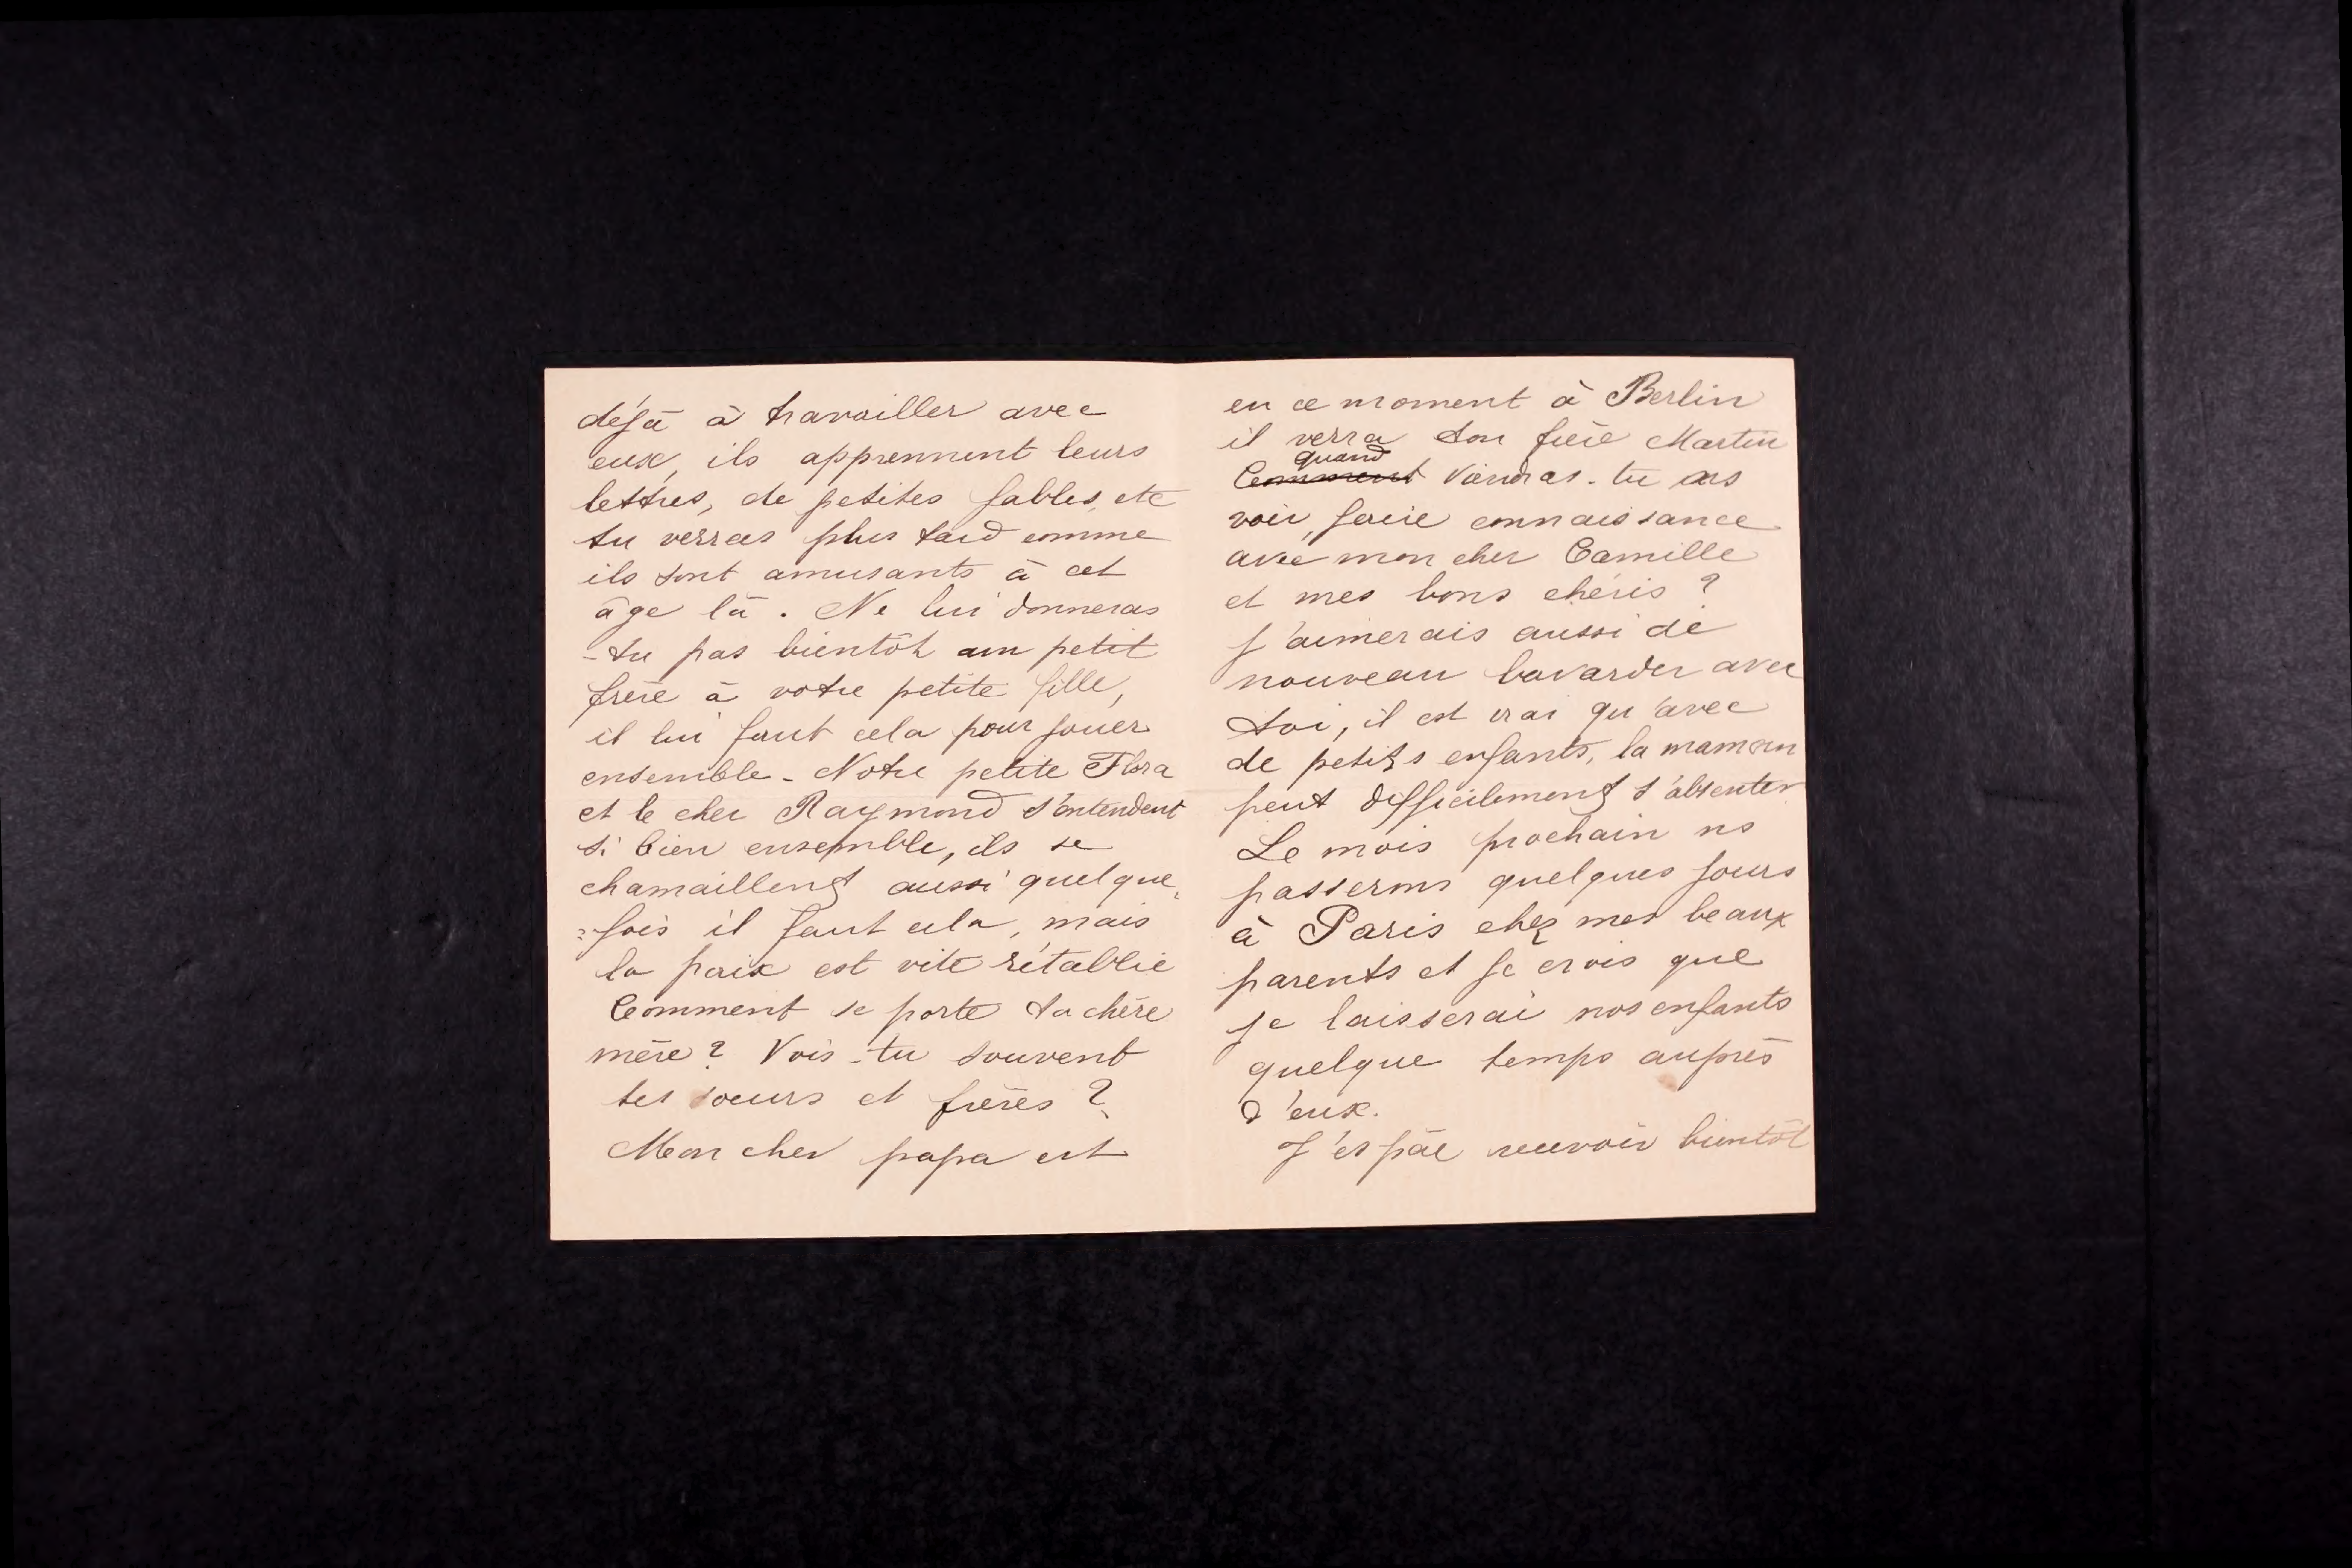 déjà à travailler avec
eux, ils apprennent leurs
lettres, de petites fables, etc
tu verras plus tard comme
ils sont amusants à cet
âge là. Ne lui donneras
-tu pas bientôt un petit
frère à votre petite fille,
il lui faut cela pour jouer
ensemble - Notre petite Flora
et le cher Raymond s'entendent
si bien ensemble, ils se
chamaillent aussi quelque-
=fois il faut cela, mais
la paix est vite rétablie
Comment se porte ta chère
mère? Vois-tu souvent
tes soeurs et frères?
Mon cher papa est
en ce moment à Berlin
il verra ton frère Martin
quand
Comment viendras-tu ns
voir, faire connaissance
avec mon cher Camille
et mes bons chéris?
J'aimerais aussi de
nouveau bavarder avec
toi, il est vrai qu'avec
de petits enfants, la maman
peut difficilement s'absenter
Le mois prochain ns
passerons quelques jours
à Paris chez mes beaux
parents et je crois que
je laisserai nos enfants
quelque temps auprès
d'eux.
J'espère recevoir bientôt